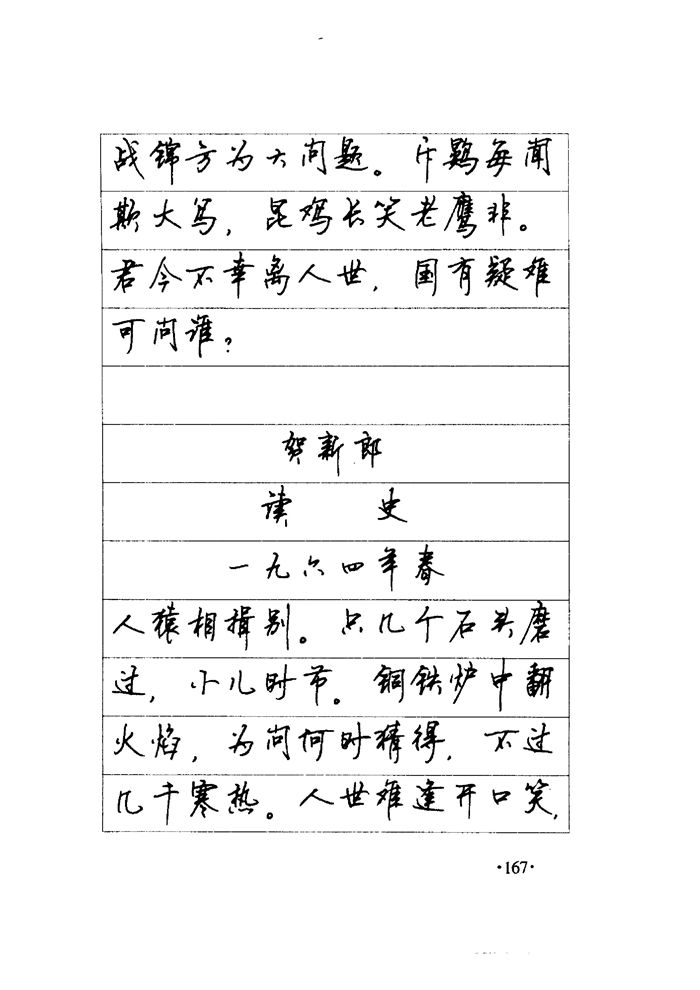 战锦方为大问题。斥鷃每闻
欺大鸟，昆鸡长笑老鹰非。
君今不幸离人世，国有疑难
可问谁？
贺新郎
读 史
一九六四年春
人猿相揖别。只几个石头磨
过，小儿时节。铜铁炉中翻
火焰，为问何时猜得，不过
几千寒热。人世难逢开口笑，
·167·